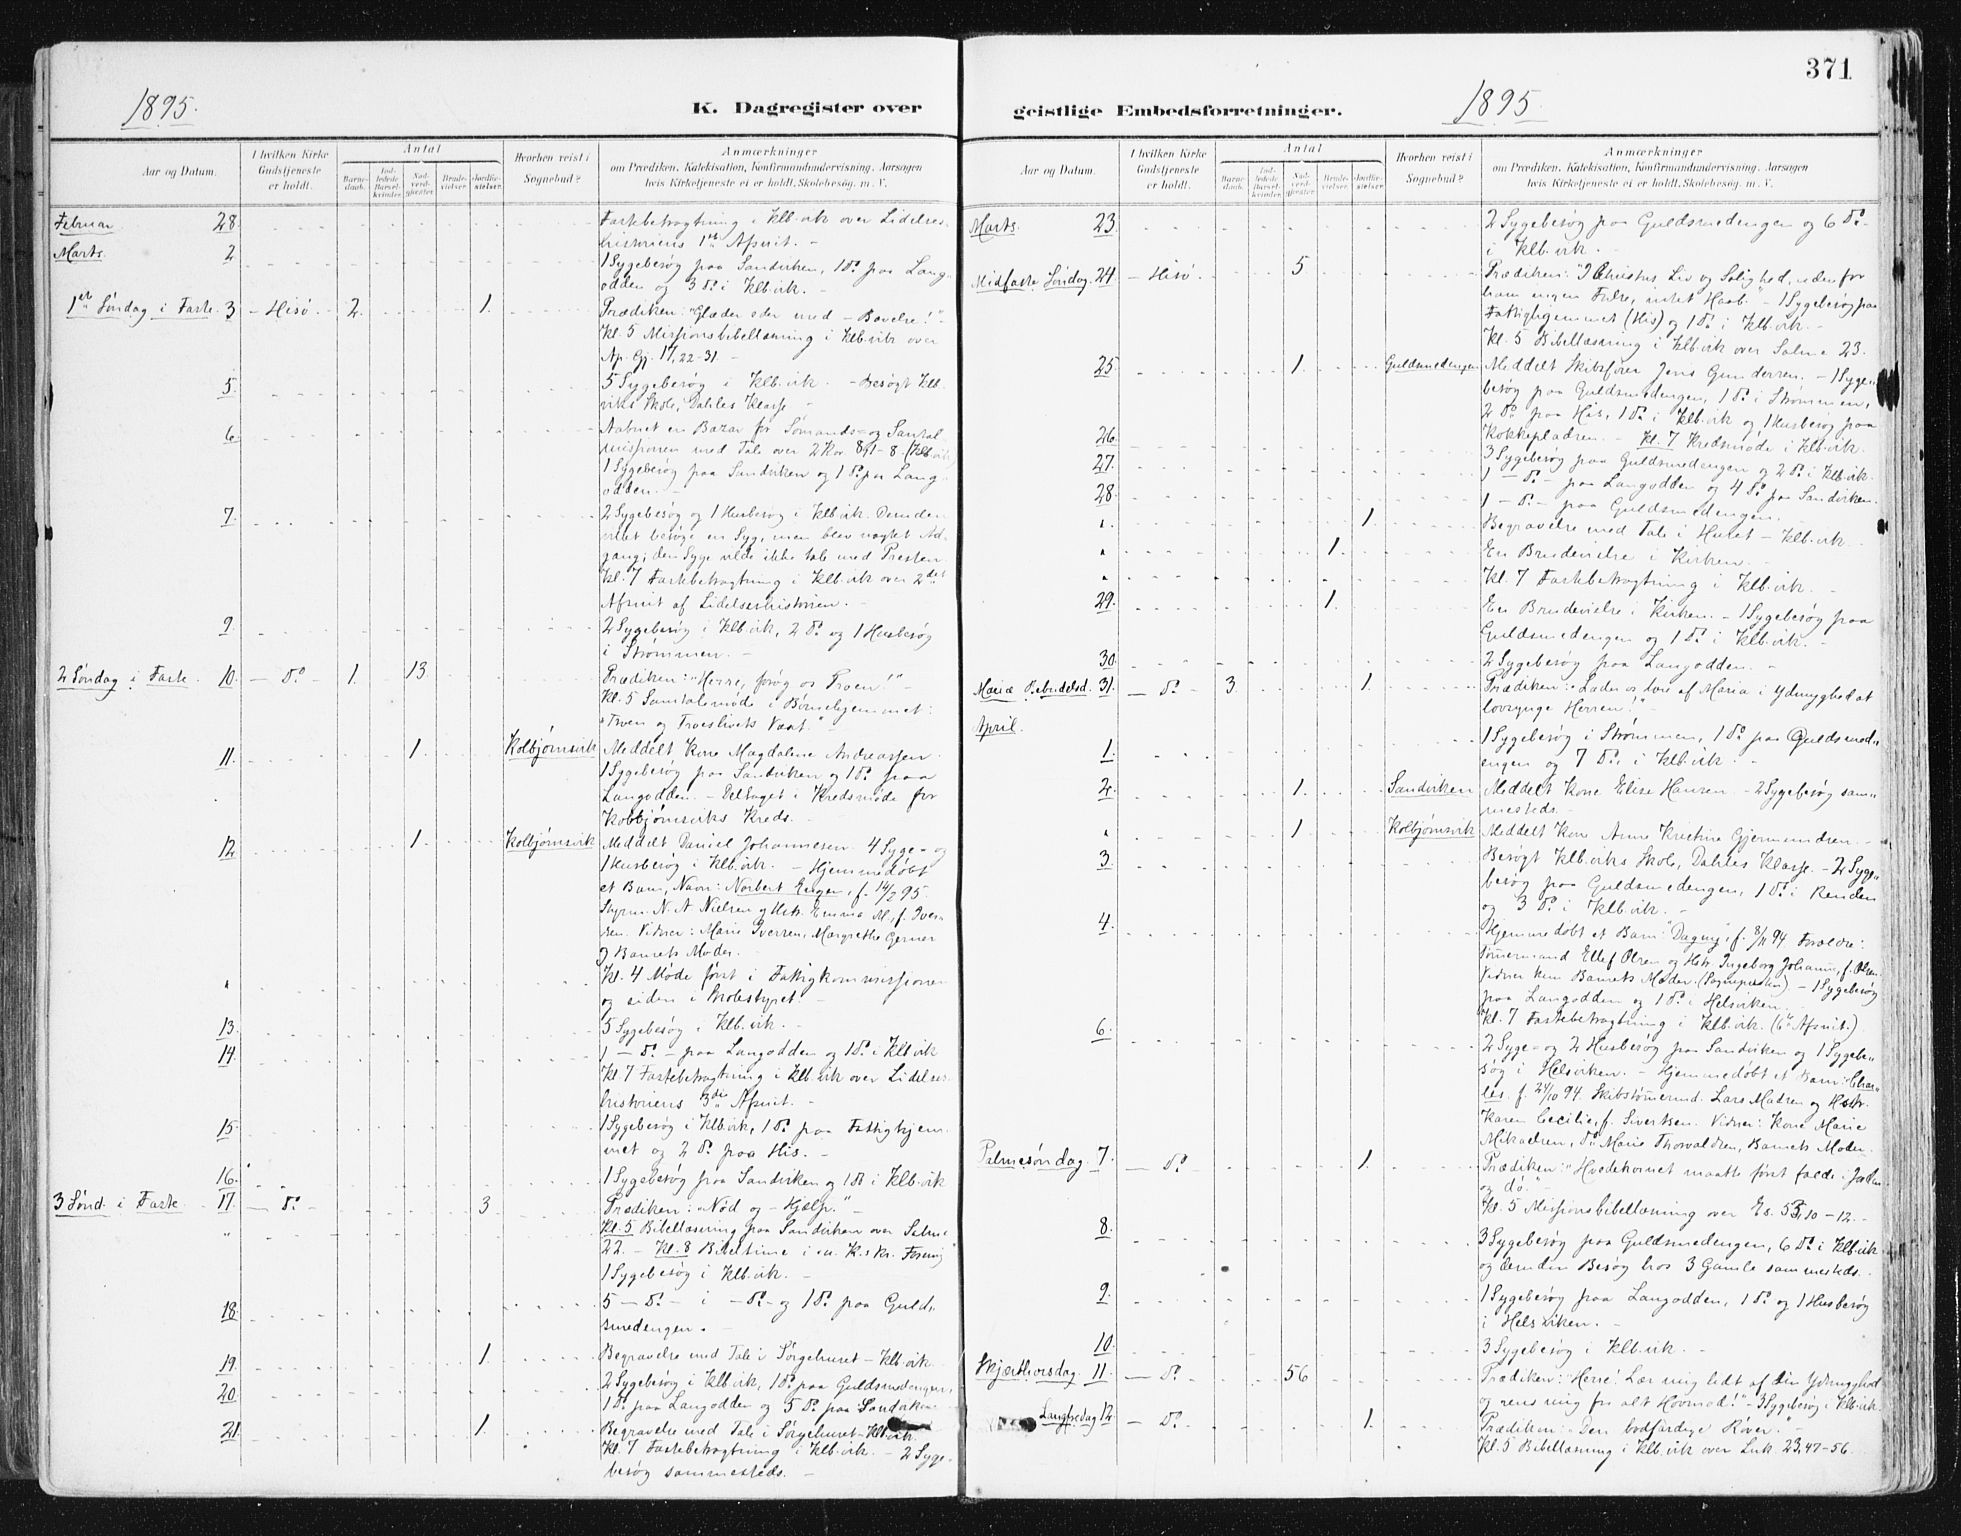 1895.
K. Dagregister over
Aar og Datum.
I hvilken Kirke Gudstjeneste er holdt.
Antal
Barnedaab.
Indledede Barselkvinder.
Nadverdgjester.
Brudevielser.
Jordfæstelser.
Hvorhen reist i Sognebud?
Anmærkninger
om Prædiken, Katekisation, Konfirmandundervisning, Aarsagen
hvis Kirketjeneste ei er holdt, Skolebesøg. m. V.
Februar 28. Fastebetragtning i Klb.vik over Lidelses-
historiens 1ste Afsnit. -
Marts. 2 1 Sygebesøg paa Sandviken, 1 Do. paa Lang-
odden og 3 Do. i Klb.vik. -
1ste Søndag i Faste. 3 - Hisø. 2. 1. Prædiken: "Glæder eder med - Bævelse!" -
Kl. 5 Missionsbibellæsning i Klb.vik over
Ap. Gj. 17, 22-31. -
5. 5 Sygebesøg i Klb.vik. - Besøgt Klb.
viks Skole, Dahles Klasse -
6. Aabnet en Bazar for Sømands- og Santal-
missionen med Tale over 2 Kor 8, 1-8. (Klb.vik)
1 Sygebesøg paa Sandviken og 1 Do. paa Lang-
odden. -
7. 2 Sygebesøg og 1 Husbesøg i Klb.vik. Desuden
villet besøge en Syg, men blev nægtet Ad-
gang; den Syge vilde ikke tale med Presten.
Kl. 7 Fastebetragtning i Klb.vik over 2det
Afsnit af Lidelseshistorien. -
9. 2 Sygebesøg i Klb.vik, 2 Do. og 1 Husbesøg
i Strømmen. -
2 Søndag i Faste. 10. - Do. 1. 13. Prædiken: "Herre, forøg os Troen!" -
Kl. 5 Samtalemøde i Børnehjemmet:
"Troen og Troeslivets Væxt."
11. 1. Kolbjørnsvik Meddelt Kone Magdaline Andreassen.
1 Sygebesøg paa Sandviken og 1 Do. paa
Langodden. - Deltaget i Kredsmøde for
Kolbjørnsviks Kreds. -
12 1. Kolbjørnsvik Meddelt Daniel Johannesen. 4 Syge- og
1 Husbesøg i Klb.vik. - Hjemmedøbt
et Barn, Navn: Norbert Enger, f. 14/2 95.
Styrm. N. A Nielsen og Hstr. Emma M., f. Iver-
sen. Vidner: Marie Iversen, Margrethe Gerner
og Barnets Moder.
" Kl. 4 Møde først i Fattigkommissionen
og siden i Skolestyret. -
13. 5 Sygebesøg i Klb.vik. -
14. 1 - Do. - paa Langodden og 1 Do. i Klb.vik
Kl. 7 Fastebetragtning i Klb.vik over Lidelses-
historiens 3die Afsnit. -
15. 1 Sygebesøg i Klb.vik, 1 Do. paa Fattighjem-
met og 2 Do. paa His. -
16. 1 Sygebesøg paa Sandviken og 1 Do. i Klb.vik
3 Sønd. i Faste. 17. - Do. 3 Prædiken: "Nød og - Hjælp." -
" Kl. 5 Bibellæsning paa Sandviken over Salme
22. - Kl. 8 Bibeltime i u. K.s kr. Foreng
1 Sygebesøg i Klb.vik. -
18. 5 - Do. - i - Do. - og 1 Do. paa Guld-
smedengen. -
19. 1. Begravelse med Tale i Sørgehuset - Klb.vik.
20. 2 Sygebesøg i Klb.vik, 1 Do. paa Guldsmedengen,
1 Do. paa Langodden og 5 Do. paa Sandviken
21. 1. Begravelse med Tale i Sørgehuset - Klb.vik
Kl. 7 Fastebetragtning i Klb.vik. - 2 Syge-
besøg sammesteds. -
371
geistlige Embedsforretninger.
1895.
Aar og Datum.
I hvilken Kirke Gudstjeneste er holdt.
Antal
Barnedaab.
Indledede Barselkvinder.
Nadverdgjester.
Brudevielser.
Jordfæstelser.
Hvorhen reist i Sognebud?
Anmærkninger
om Prædiken, Katekisation, Konfirmandundervisning, Aarsagen
hvis Kirketjeneste ei er holdt, Skolebesøg. m. V.
Marts. 23. 2 Sygebesøg paa Guldsmedengen og 6 Do. -
i Klb.vik. -
Midfaste Søndag. 24 - Hisø. 5 Prædiken: "I Christus Liv og Salighed, udenfor
ham ingen Frelse, intet Haab." - 1 Sygebesøg paa
Fattighjemmet (His) og 1 Do. i Klb.vik. -
Kl. 5 Bibellæsning i Klb.vik over Salme 23.
25. 1. Guldsmedengen Meddelt Skibsfører Jens Gundersen. - 1 Syge-
besøg paa Guldsmedengen, 1 Do. i Strømmen,
2 Do. paa His, 1 Do. i Klb.vik og 1 Husbesøg paa
Kokkepladsen. - Kl. 7 Kredsmøde i Klb.vik.
26. 3 Sygebesøg paa Guldsmedengen og 2 Do. i Klb.vik.
27. 1 - Do. - paa Langodden og 4 Do. paa Sandviken.
28. 1 - Do. - paa Guldsmedengen.
" 1. Begravelse med Tale i Huset - Klb.vik. -
" 1. En Brudevielse i Kirken. -
" Kl. 7 Fastebetragtning i Klb.vik. -
29. 1. En Brudevielse i Kirken. - 1 Sygebesøg paa
Guldsmedengen og 1 Do. i Klb.vik. -
30. 2 Sygebesøg paa Langodden. -
Mariæ Bebudelsd. 31. - Do. 3. 1. Prædiken: "Lader os lære af Maria i Ydmyghed at
lovsynge Herren!" -
April.
1. 1 Sygebesøg i Strømmen, 1 Do. paa Guldsmed-
engen og 7 Do. i Klb.vik. -
2. 1. Sandviken Meddelt Kone Elise Hansen. - 2 Sygebesøg sam-
mesteds. -
" 1 Kolbjørnsvik Meddelt Kone Anne Kristine Gjermundsen. -
3. Besøgt Klb.viks Skole, Dahles Klasse. - 2 Syge-
besøg paa Guldsmedengen, 1 Do. i Renden
og 3 Do. i Klb.vik. -
4. Hjemmedøbt et Barn: "Dagny", f. 8/11 94. Forældre:
Tømermand Ellef Olsen og Hstr. Ingeborg Johanne, f. Olsen.
Vidner kun Barnets Moder. (Sogne­presten) - 1 Sygebesøg
paa Langodden og 1 Do. i Helsviken.
Kl. 7 Fastebetragtning i Klb.vik. (6te Afsnit.)
6. 2 Syge- og 2 Husbesøg paa Sandviken og 1 Sygebe-
søg i Helsviken. - Hjemmedøbt et Barn: Char-
les. f. 24/10 94. Skibstømermd. Lars Madsen og Hstr.
Karen Cecilie, f. Sivertsen. Vidner: Kone Marie
Mikaelsen, Do. Marie Thorvaldsen, Barnets Moder.
Palmesøndag. 7. - Do. 1. Prædiken: "Hvedekornet maatte først falde i Jorden
og dø." -
Kl. 5 Missionsbibellæsning over Es. 53, 10-12. -
8. 3 Sygebesøg paa Guldsmedengen, 6 Do. i Klb.vik
og desuden Besøg hos 3 Gamle sammesteds.
9. 1 Sygebesøg paa Langodden, 1 Do. og 1 Husbesøg
i Helsviken. -
10. 3 Sygebesøg i Klb.vik. -
Skjærthorsdag. 11. - Do. 56 Prædiken: "Herre! Lær mig lidt af din Ydmyghed
og rens mig fra alt Hovmod!" - 3 Sygebesøg i Klb.vik.
Langfredag 12. - Do. 1. Prædiken: "Den bodfærdige Røver." -
Kl. 5 Bibellæsning i Klb.vik over Luk 23, 47-56.